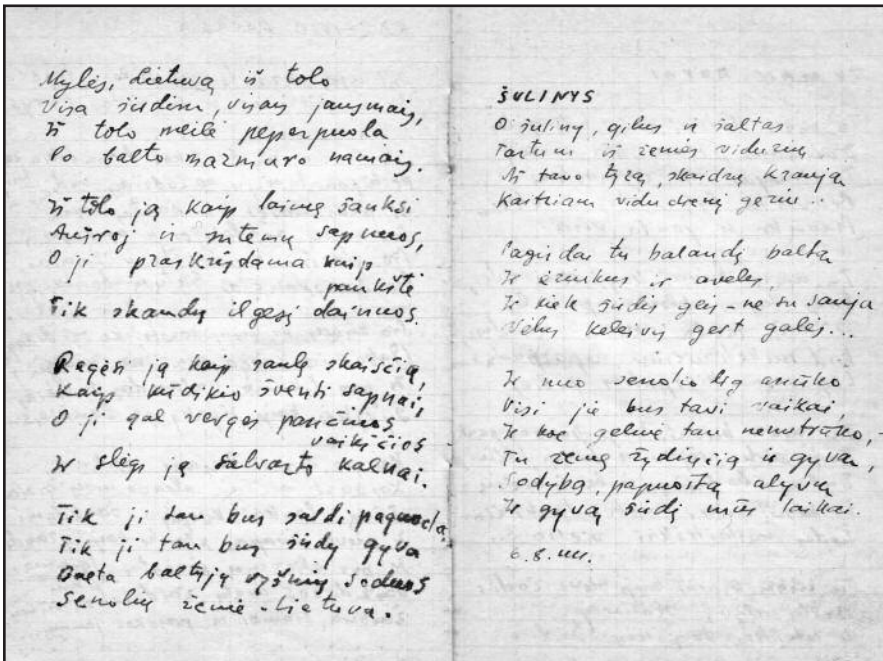 Mylės, Lietuvą iš tolo
Visa širdim, visais jausmais,
Iš tolo meilė
Po balto marmuro namais.
Iš tolo ją kaip laimę šauksi
Aušroj ir sutemų sapnuos,
O ji praskrisdama kaip
paukštė
Tik skandų ilgesį dainuos.
Regėsi ją kaip saulę skaisčią,
Kaip kūdikio šventi sapnai,
O ji gal vergės pančiuos
vaikščios
Ir slėgs ją kalnai.
Tik ji tau bus saldi paguoda,
Tik ji tau bus širdy gyva
Balta baltųjų vyšnių soduos
Senolių žemė - Lietuva.
ŠULINYS
O šuliny, gilus ir šaltas
Tartum iš žemės vidurių
Aš tavo tyrą, skaidrų kraują
Kaitriam vidudieny geriu...
Pagirdai tu balandį baltą
Ir ėriukus ir avelės,
Ir kiek širdis geis - ne su saują
Vėlus keleivis gert galės...
Ir nuo senolio lig anūko
Visi jie bus tavi vaikai,
Ir kol gelmė tau nenutrūko, -
Tu žemę žydinčią ir gyvą,
Sodybą, papuoštą alyvų
Ir gyvą širdį mūs laikai.